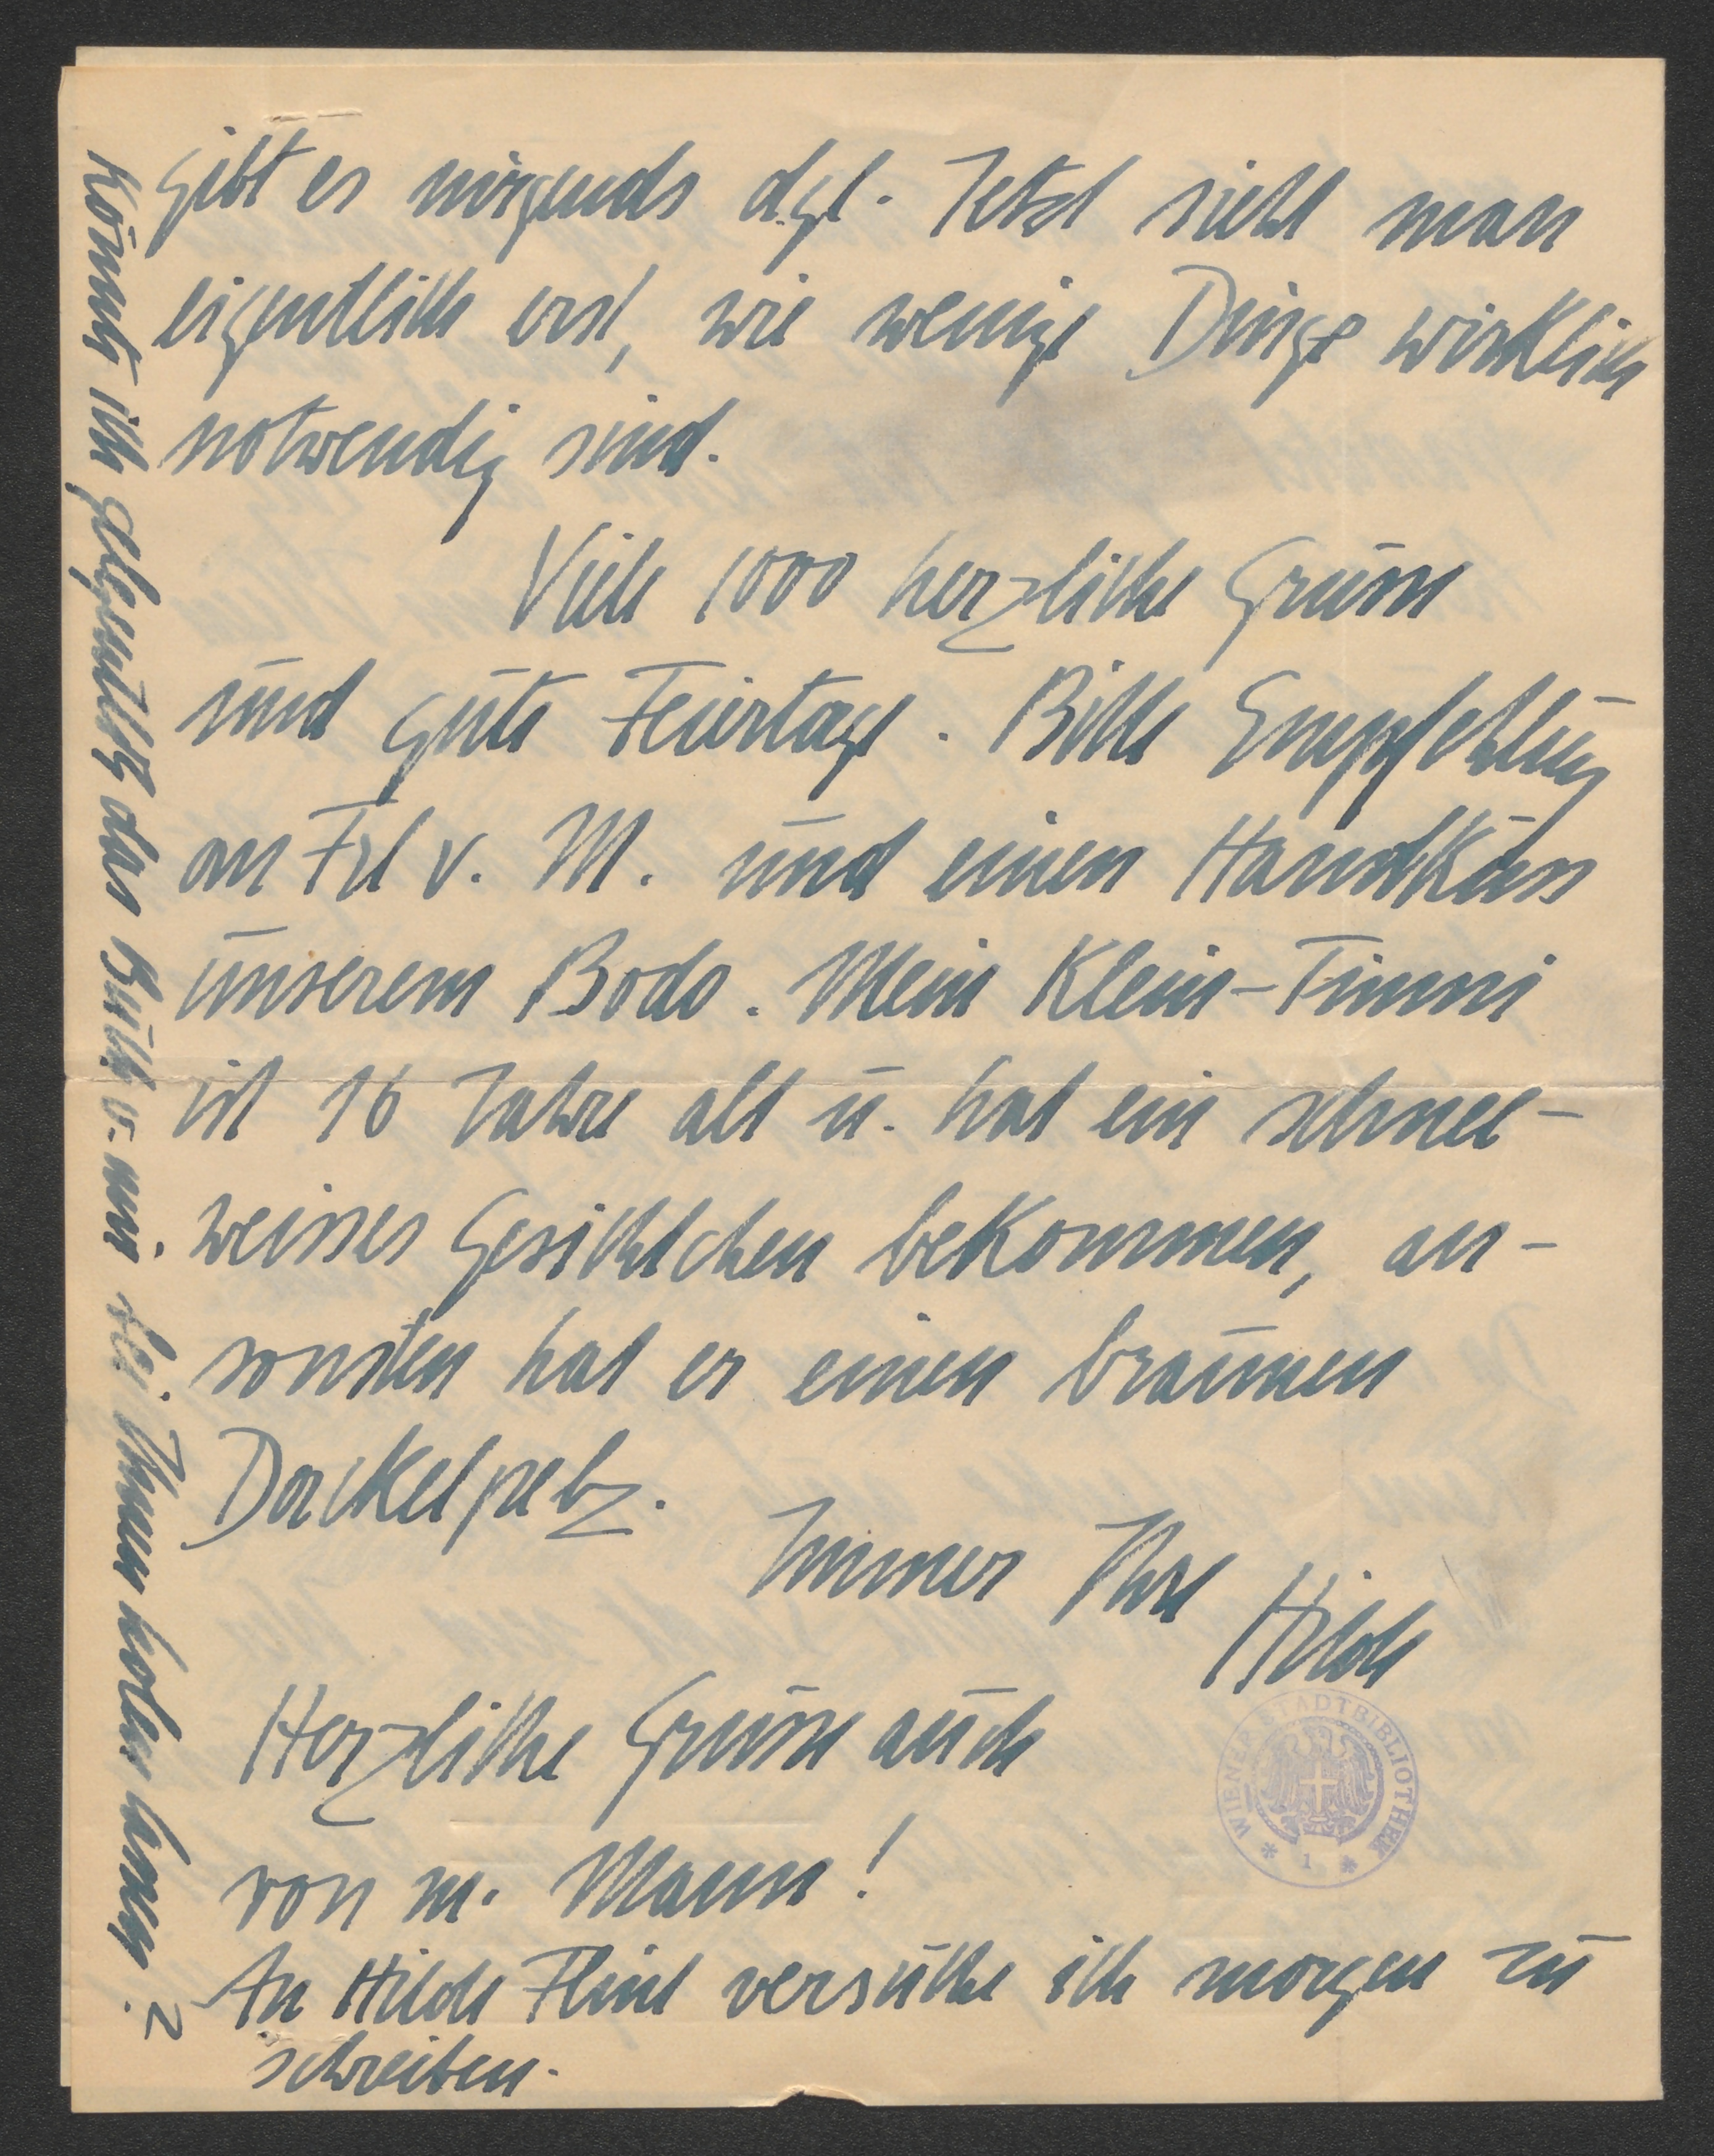 gibt es nirgends dgl. Jetzt sieht man
eigentlich erst, wie wenige Dinge wirklich
notwendig sind.
Viele 1000 herzliche Grüsse
und gute Feiertage. Bitte Empfehlung
an Frl v. M. und einen Handkuss
unserem Bodo. Mein Klein-Timmi
ist 16 Jahre alt u. hat ein schnee-
weisses Gesichtchen bekommen, an-
sonsten hat er einen braunen
Dackelpelz.
Immer Ihre
Hilde
Herzliche Grüsse auch
von m. Mann!
An Hilde Flint versuche ich morgen zu
schreiben.
Könnte ich gelegentlich das Buch v. mir bei Ihnen holen lassen?
WIENER STADTBIBLIOTHEK
* 1 *